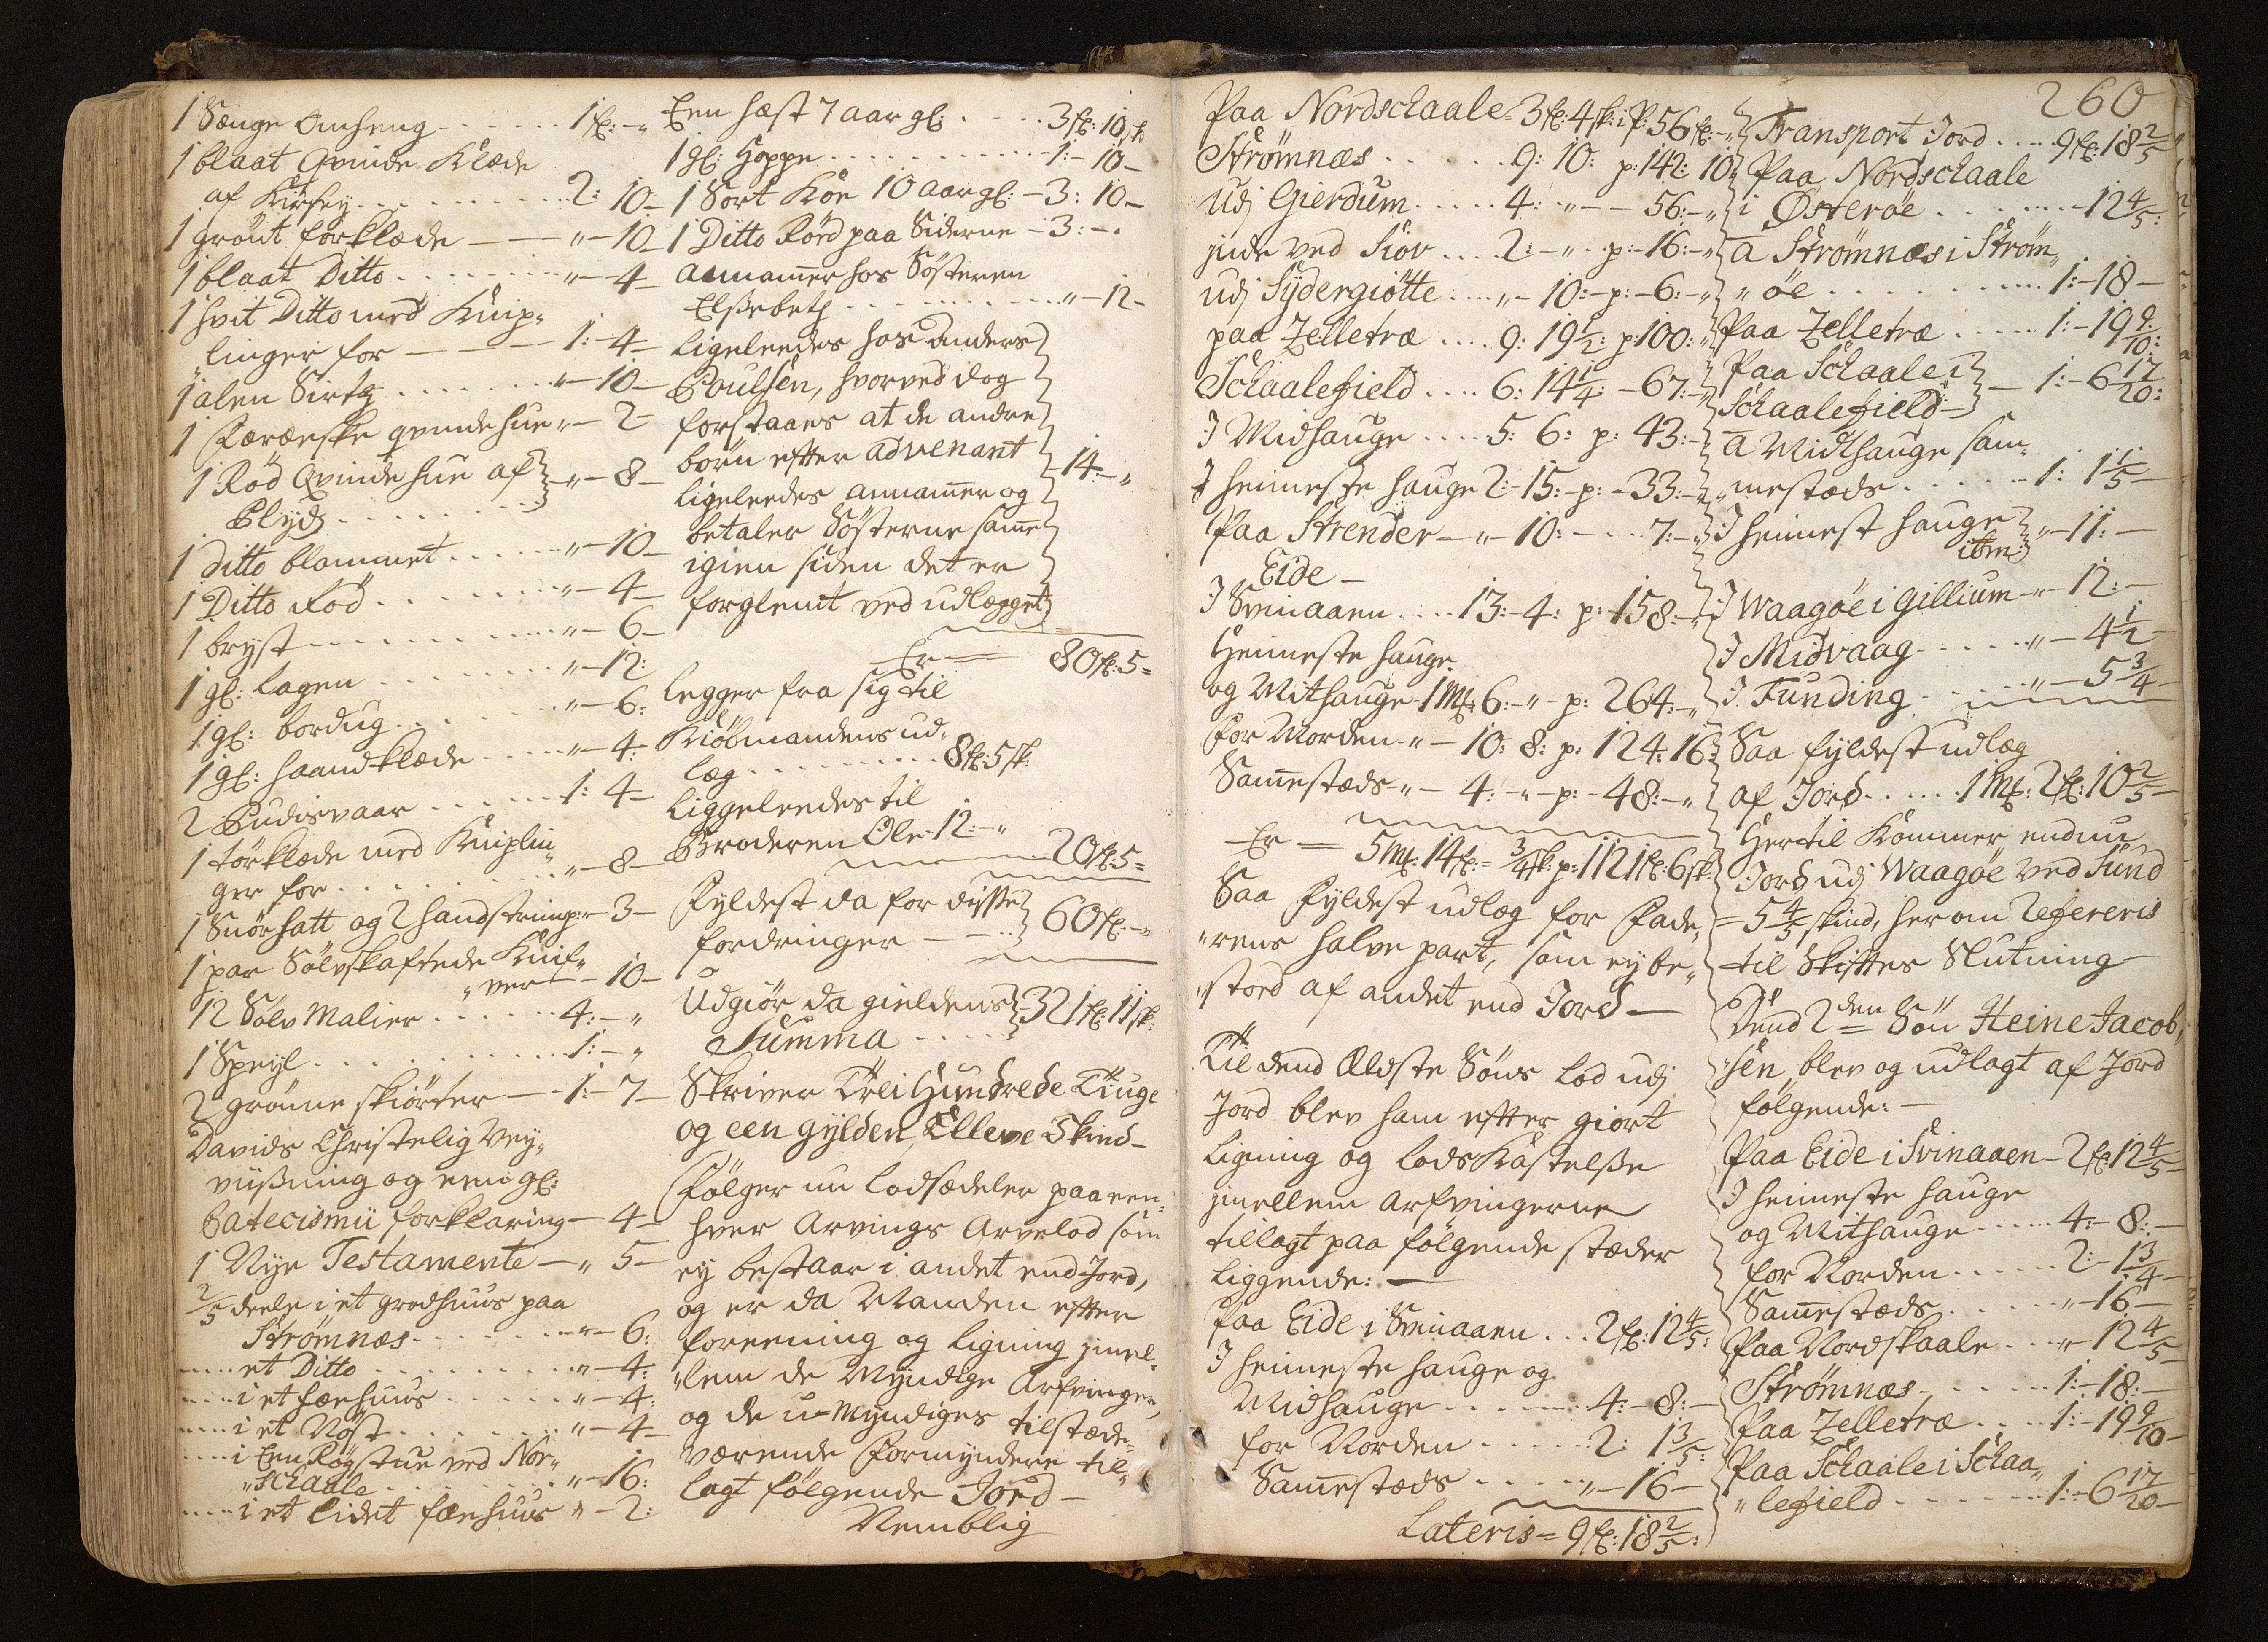 1 Senge Omheng . . . . . . 1 fl: - "
1 blaat Qvinde Klæde
af Kirsey . . . . . . 2: 10 -
1 grönt forklæde - - " - 10 -
1 blaat Ditto . . . . . . " - 4 -
1 hvit Ditto med Knip„
„linger for - - - 1: - 4 -
1 alen Sirtz . . . . . . " - 10 -
1 Færøeske qvindehue " - 2 -
1 Röd Qvinde hue af
Plyds . . . . . . " - 8 -
1 Ditto blommet . . . . " - 10 -
1 Ditto Röd . . . . . . " - 4 -
1 bryst . . . . . . " - 6 -
1 gl: Lagen . . . . . . " - 12:
1 gl: bordug . . . . . . " - 6:
1 gl: haandklæde . . . . " - 4:
2 Pudisvaar . . . . . . 1: 4 -
1 törklæde med Kniplin„
ger for . . . . . . " - 8 -
1 Snörhatt og 2 handstrimp: - 3 -
1 par Sölvskaftede Knif„
„ver - 10 -
12 Sölv Malier . . . . . . 4: - "
1 Speyl . . . . . . 1: - "
2 grönne skiörter - - 1: - 7 -
Davids Christelig Vey„
viisning og een gl:
Catecismii forklaring - 4 -
1 Nye Testamente - " 5 -
2/5 deele i et grodhuus paa
Strömnæs . . . . . . " - 6:
---- et Ditto . . . . . . " - 4:
---- i et fæehuus . . . . . . " - 4:
---- i et Nöst . . . . . . " - 4 -
---- i Een Rögstue ved Nor„
„schaale . . . . . . " - 16:
---- i et lidet fæehuus " - 2:
Een hæst 7 aar gl: . . . . 3 fl: 10 sk
1 gl: Hoppe . . . . . . 1: - 10 -
1 Sort Köe 10 aar gl: - 3: 10 -
1 Ditto Röd paa Siderne - 3: - .
annammer hos Sösteren
Elsebeth . . . . . . " - 12 -
Ligeleedes hos Anders
Poulsen, hvorved dog
forstaaes at de andre
börn efter advenant
ligeleedes annammer og 14: - "
betaler Sösterne samme
igien siden det er
forglemt ved udlægget
Er - 80 fl: 5 =
Legger fra sig til
Kiöbmandens ud„
læg . . . . . . 8 fl: 5 sk:
Liggeleedes til
Broderen Ole - 12: - "
20 fl: 5 =
Fyldest da for disse
fordringer - - . . 60 fl: - "
Udgiör da gieldens
Summa . . . . 321 fl: 11 sk:
Skriver Trei Hundrede Tiuge
og een gylden, Elleve Skind -
Fölger nu Lodsedeler paa een„
hver Arvings Arvelod som
ey bestaar i andet end Jord,
og er da Manden efter
foreening og ligning jmel„
„lem de Myndige Arfvinger,
og de u-Myndiges tilstæde„
værende Formyndere til„
lagt fölgende Jord -
Nemblig
260
Paa Nordschaale - 3 fl: 4 sk: i p: 56 fl: - "
Strömnæs . . . . . . 9: 10: p: 142: 10
Udj Gierdum . . . . 4: " - - 56: - "
jnde ved Siov . . . . 2: - " - p: - 16: - "
udj Sydergiötte . . . " - 10: - p: - 6: - "
paa Zelletræ . . . . 9: 19 1/2: p: 100: "
Schaalefield . . . . 6: 14 1/4: - 67: - "
J Midhauge . . . . 5: 6: p: 43: -
J heimeste hauge 2: - 15: - p: - 33: -
Paa Strender - " - 10: - . . . 7: - "
Eide -
J Svinaaen . . . . 13: - 4: p: - 158: - "
Heimeste hauge
og Mithauge - 1 Mk: 6: - " - p: 264: - "
For Norden - " - 10: 8: p: 124: 16:
Sammestæds - " - 4: - " - p: - 48: - "
Er = 5 Mk: 14 fl: = 3/4 sk: p: 1121 fl: 6 sk:
Saa Fyldest udlæg for Fade„
„rens halve part, som ey be„
„stod af andet end Jord -
Til dend Ældste Söns Lod udj
Jord blev ham efter giort
Ligning og lods Kastelse
jmellem Arfvingerne
tillagt paa fölgende stæder
liggende: -
Paa Eide i Svinaaen . . . 2 fl: 12 4/5:
J heimeste hauge og
Midhauge . . . . . . 4: - 8: -
for Norden . . . . . . 2: 1 3/5:
Sammestæds . . . . . . " - 16 -
Lateris = 9 fl: 18 2/5:
Transport Jord . . . . 9 fl: 18 2/5
Paa Nordschaale
i Österöe . . . . . . - 12 4/5:
a Strömnæs i Ström„
„öe . . . . . . 1: - 18 -
Paa Zelletræ . . . . 1: - 19 9/10:
Paa Schaale i
Schaalefield - 1: - 6 17/20:
a Midthauge sam„
„mestæds . . . . . . 1: 1 1/5 -
J heimest hauge
ibm: " - 11: -
J Waagöe i Gillium - " - 12: -
J Midvaag . . . . . . " - 4 1/2 -
J Funding . . . . . . " - 5 3/4 -
Saa fyldest udlæg
af Jord . . . . . 1 Mk: 2 fl: 10 2/5 -
Hertil Kommer endnu
Jord udj Waagöe ved Sund
= 5 4/5 skind, herom Refereris
til Skiftes Slutning -
Dend 2den Sön Heine Jacob„
„sen blev og udlagt af Jord
fölgende: -
Paa Eide i Svinaaen - 2 fl: 12 4/5 -
J heimeste hauge
og Mithauge . . . . . 4: - 8: -
for Norden . . . . . . 2: - 1 3/4 -
Sammestæds . . . . . . " - 16 -
Paa Nordskaale . . . " - 12 4/5 -
Strömnæs . . . . . . 1: - 18: -
Paa Zelletræ . . . . 1: - 19 9/10 -
Paa Schaale i Schaa„
„lefield . . . . . . 1: - 6 17/20 -